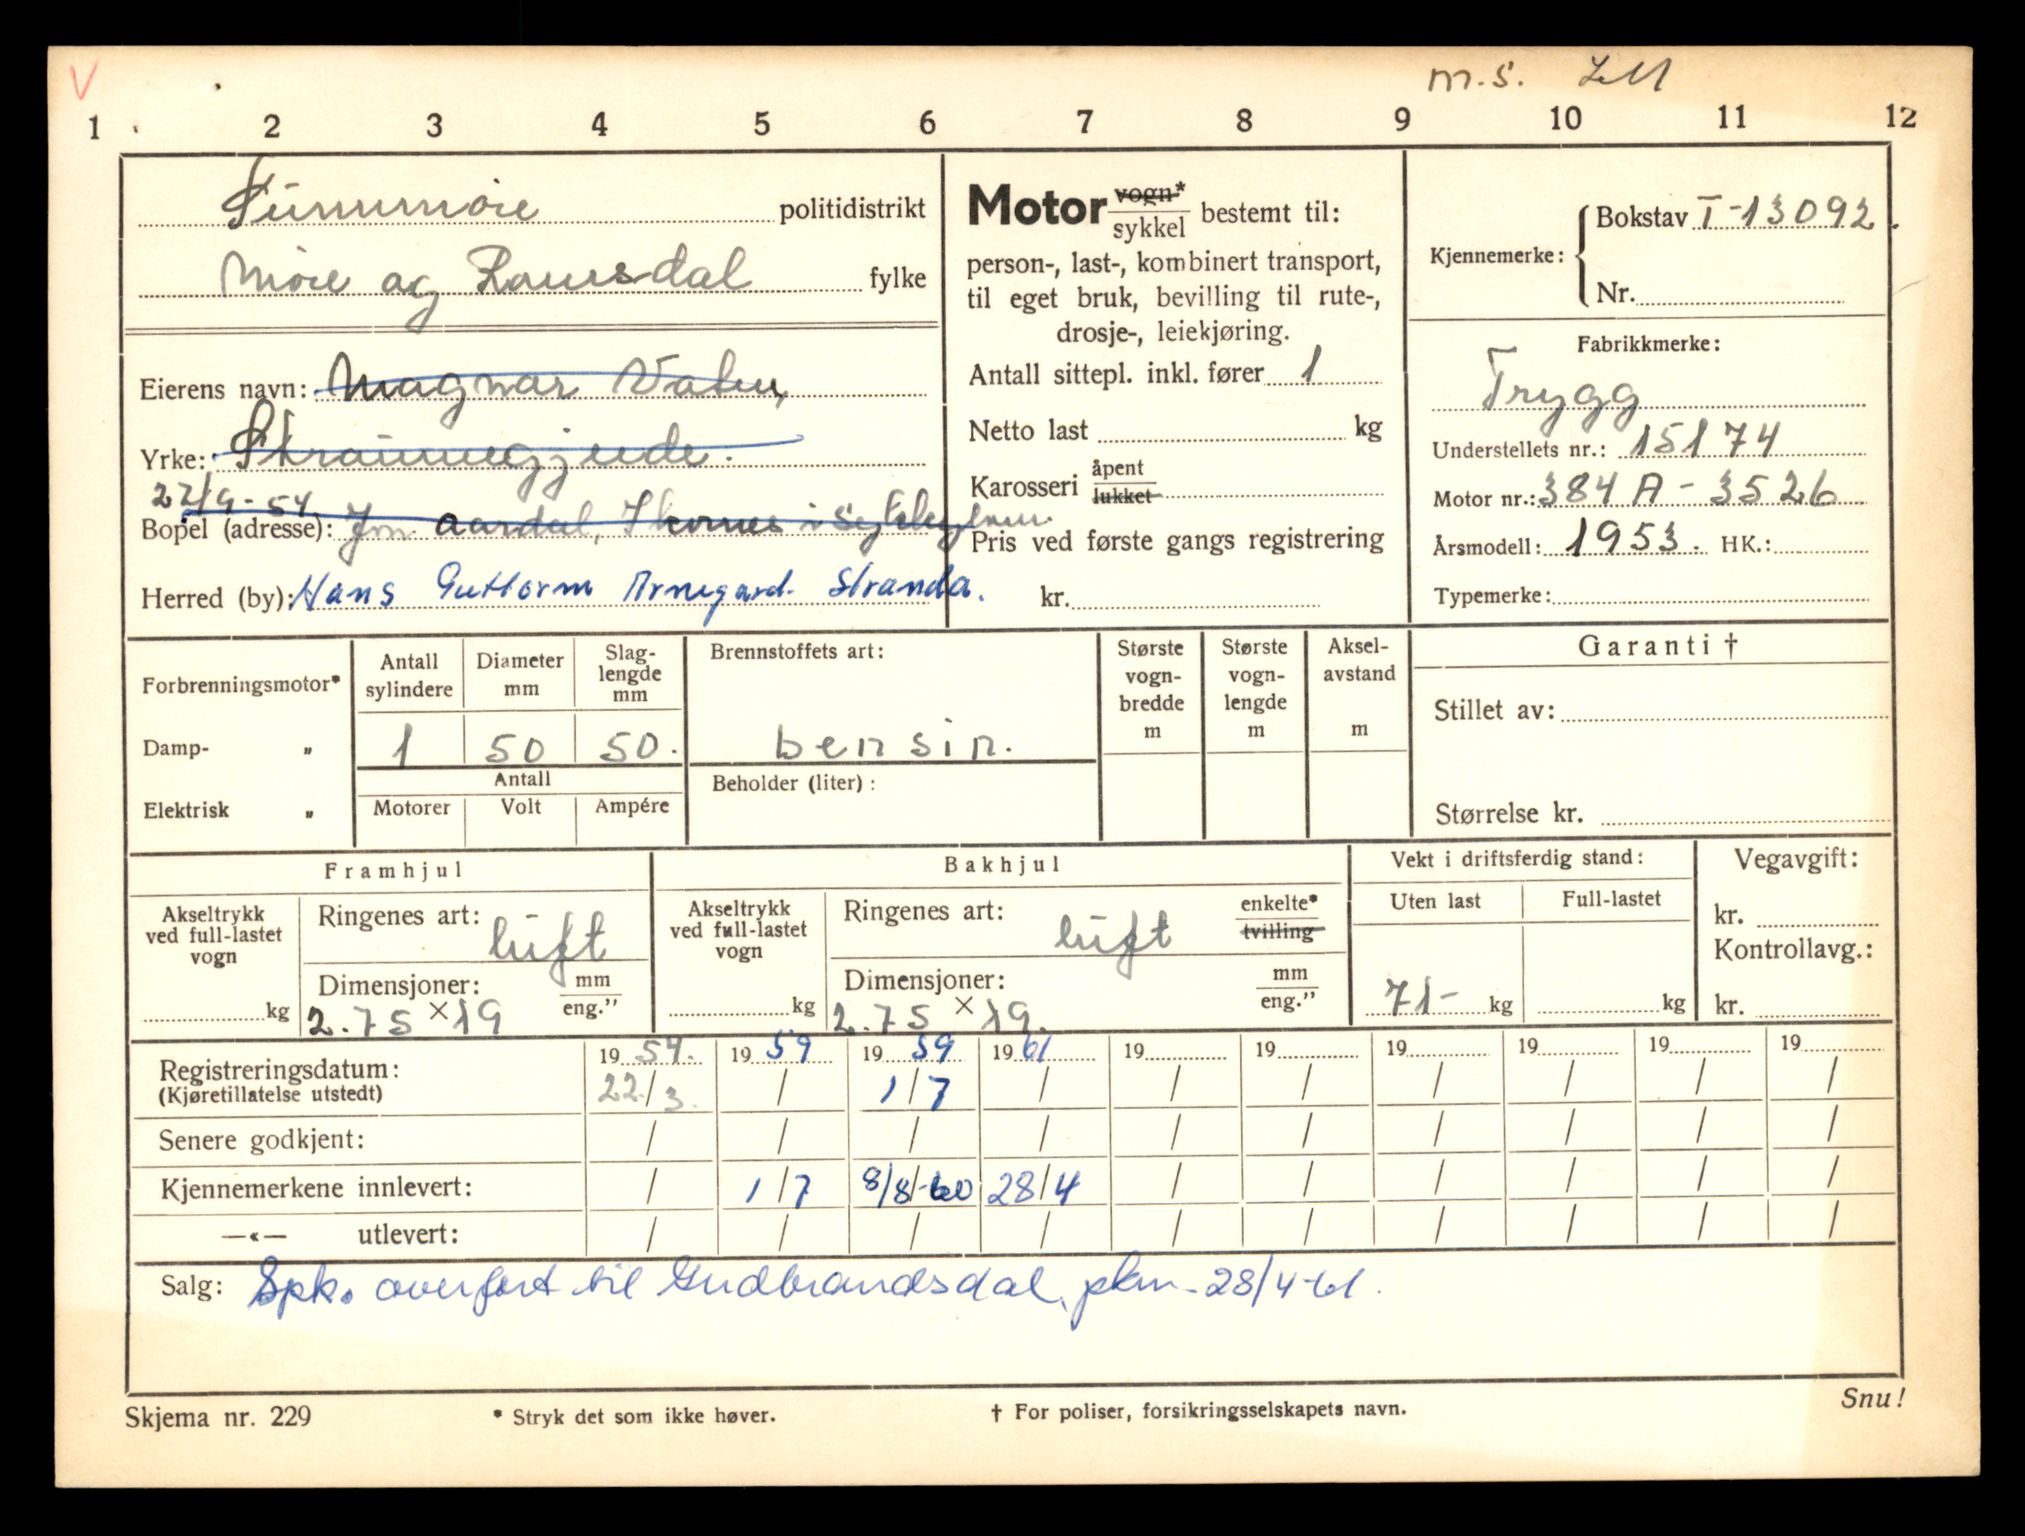 V
m.s.
1 2 3 4 5 6 7 8 9 10 11 12
Sunnmøre politidistrikt
Møre og Romsdal fylke
Eierens navn: Magnar Vatn,
Yrke:
22/9-54
Bopel (adresse): Jon Aardal,
Herred (by): Hans Guttorm Arnegard. Stranda.
Motor vogn* / sykkel bestemt til:
person-, last-, kombinert transport,
til eget bruk, bevilling til rute-,
drosje-, leiekjøring.
Antall sittepl. inkl. fører 1
Netto last kg
Karosseri åpent / lukket
Pris ved første gangs registrering
kr.
Kjennemerke: Bokstav T-13092.
Nr.
Fabrikkmerke:
Trygg
Understellets nr.: 15174
Motor nr.: 384 A - 3526
Årsmodell: 1953. HK.:
Typemerke:
Forbrenningsmotor*
Damp- „
Elektrisk „
Antall sylindere
Diameter mm
Slag- lengde mm
1 50 50.
Antall
Motorer Volt Ampére
Brennstoffets art:
bensin.
Beholder (liter):
Største vogn- bredde m
Største vogn- lengde m
Aksel- avstand m
Garanti †
Stillet av:
Størrelse kr.
Framhjul
Akseltrykk ved full-lastet vogn
kg
Ringenes art: luft
Dimensjoner: mm / eng."
2.75 × 19
Bakhjul
Akseltrykk ved full-lastet vogn
kg
Ringenes art: luft enkelte* / tvilling
Dimensjoner: mm / eng."
2.75 × 19.
Vekt i driftsferdig stand:
Uten last Full-lastet
71- kg kg
Vegavgift:
kr.
Kontrollavg.:
kr.
Registreringsdatum: 19 54. 19 59 19 59 19 61 19 19 19 19 19 19
(Kjøretillatelse utstedt) 22/3. / 1/7 / / / / / / /
Senere godkjent: / / / / / / / / / /
Kjennemerkene innlevert: / 1/7 8/8-60 28/4 / / / / / /
—«— utlevert: / / / / / / / / / /
Salg: Spk. overført til Gudbrandsdal pkm. 28/4-61.
Skjema nr. 229
* Stryk det som ikke høver.
† For poliser, forsikringsselskapets navn.
Snu!